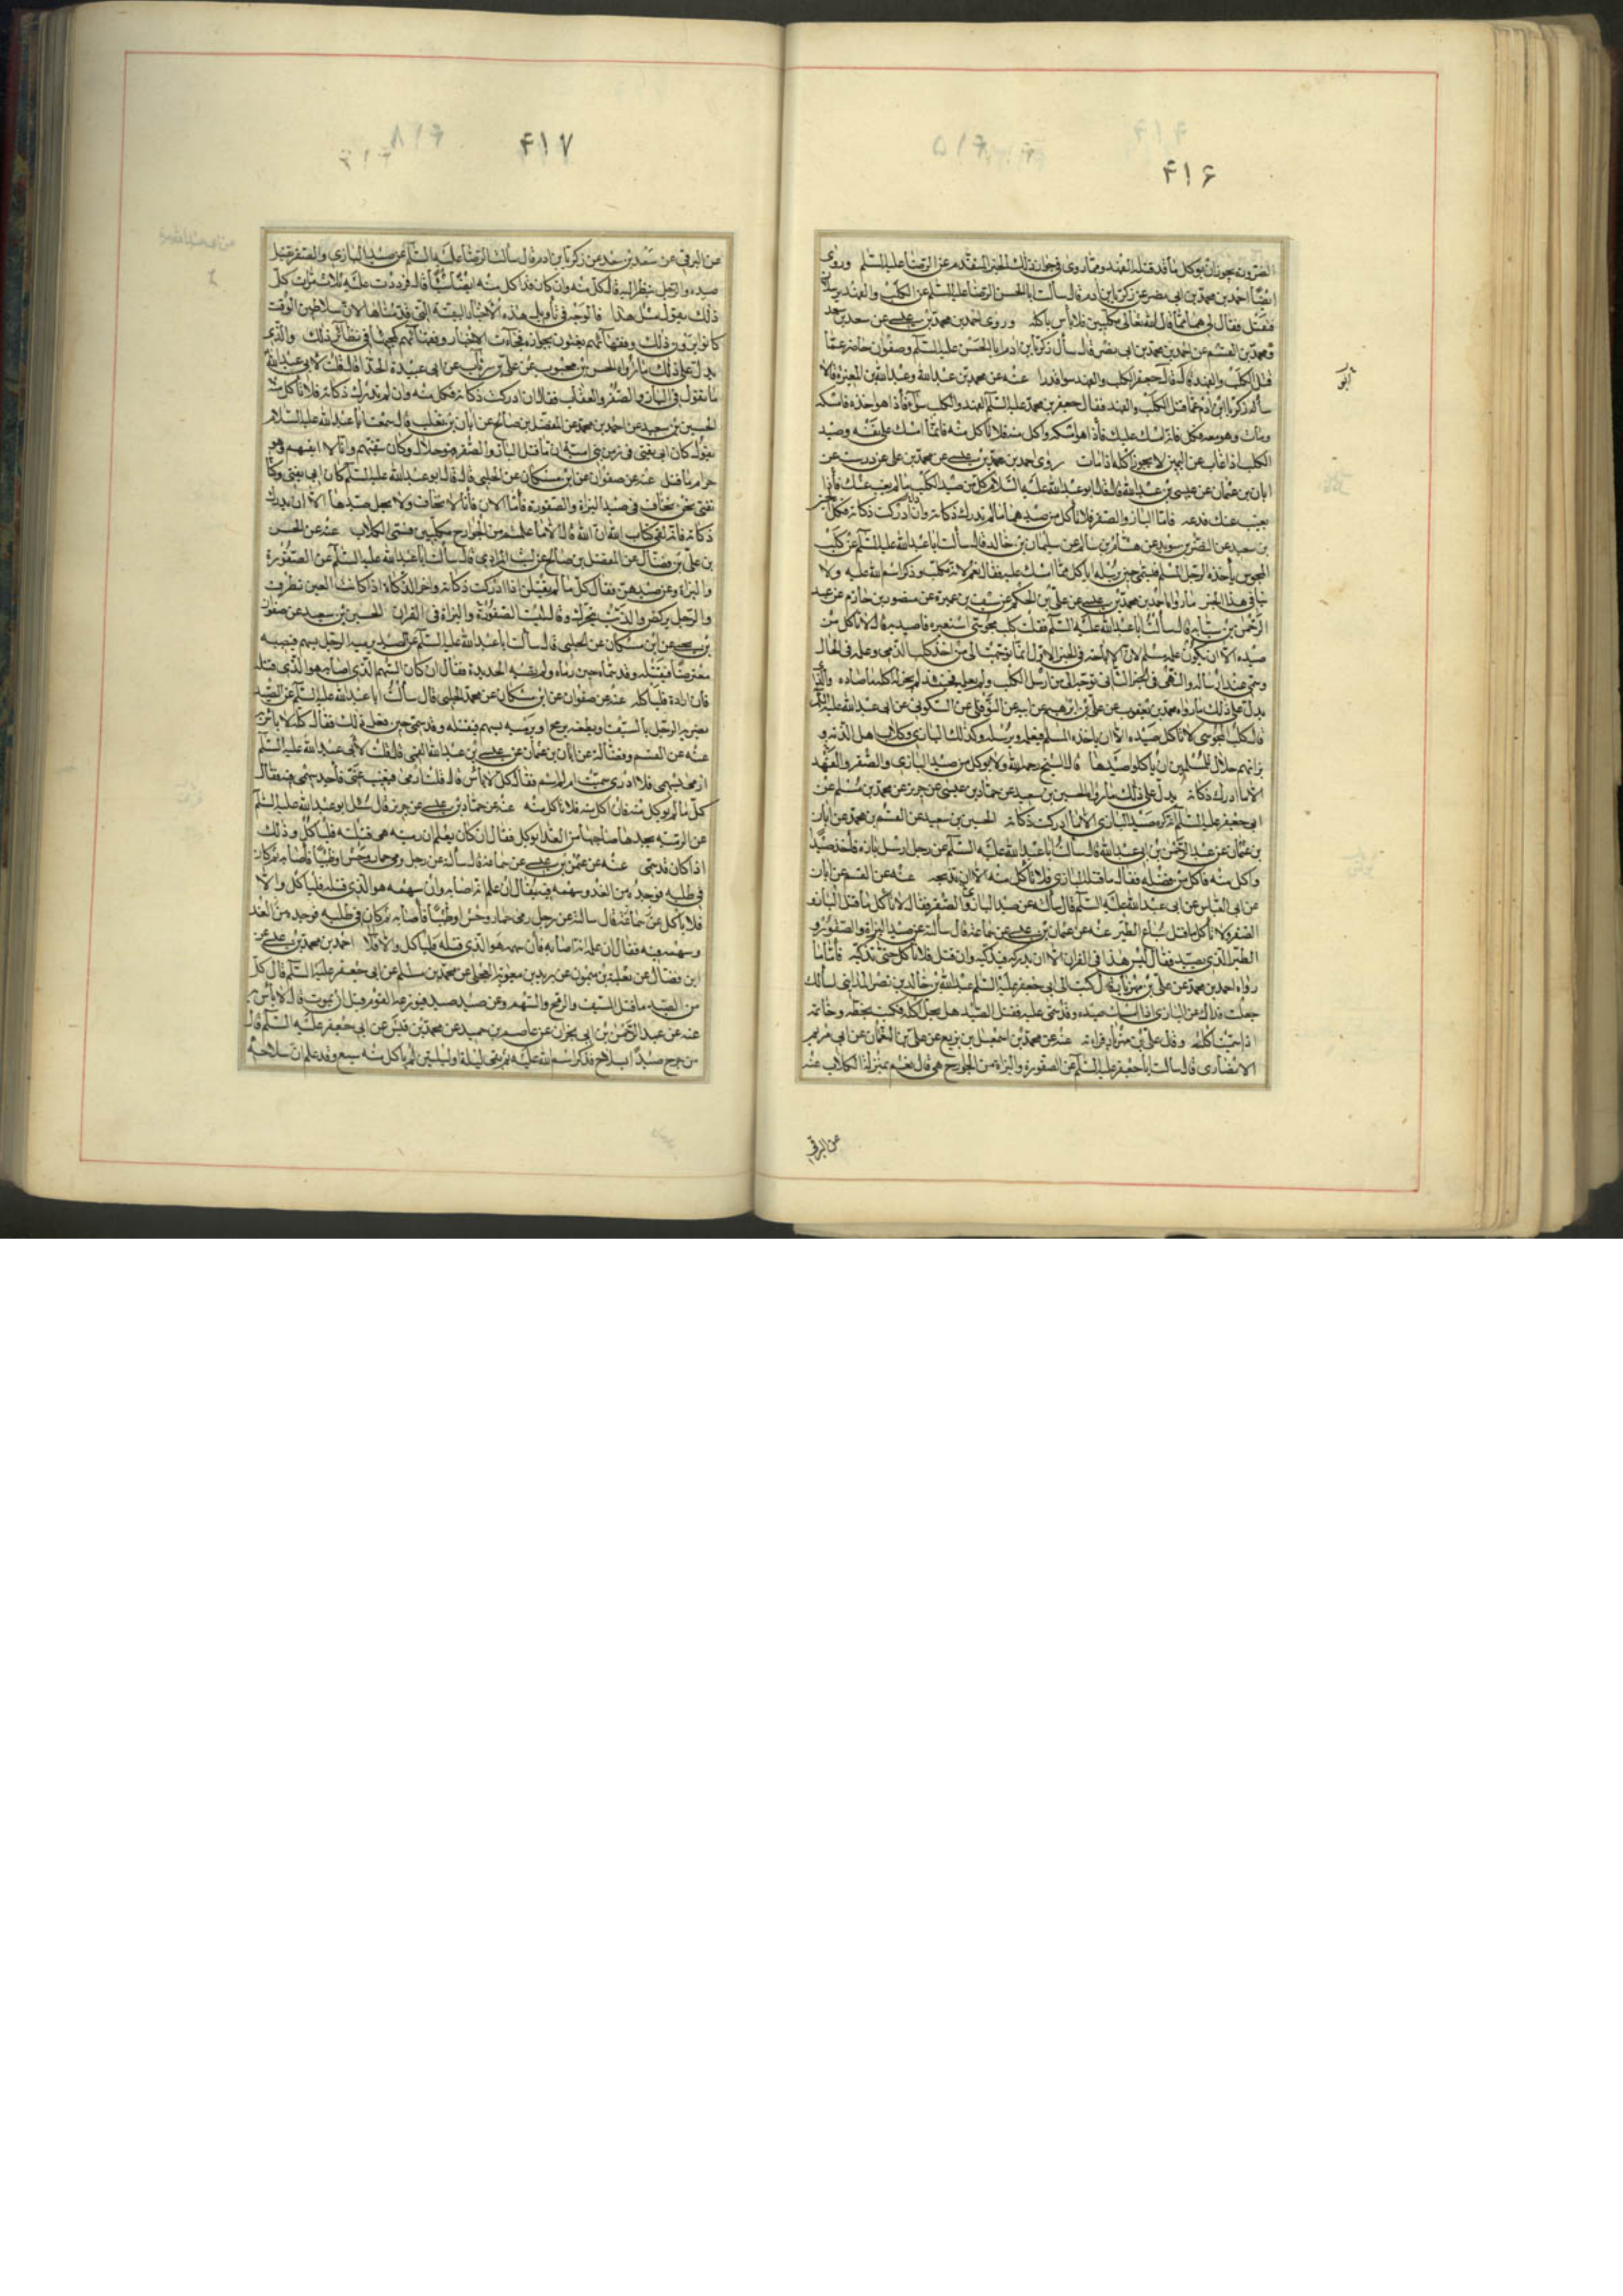 ۴۱۶
الضرورة يجوز ان يؤكل ما قد قتله الفهد ومما روى فى جواز ذلك الخبر المتقدم عن الرضا عليه السلم وروى
ايضا احمد بن محمد بن ابى نصر عن زكريا بن ادم قال سألت ابا الحسن الرضا عليه السلم عن الكلب والفهد يرسلان
فيقتل فقال لى هما مما قال الله تعالى مكلبين فلا بأس باكله وروى احمد بن محمد بن عيسى عن سعد بن سعد
ومحمد بن القسم عن احمد بن محمد بن ابى نصر قال سأل زكريا بن ادم ابا الحسن عليه السلم وصفوان حاضر عما
قتل الكلب والفهد قال قال جعفر الكلب والفهد سواء قدرا عنه عن محمد بن عبد الله وعبد الله بن المغيرة قالا
سأله زكريا بن ادم عما قتل الكلب والفهد فقال جعفر بن محمد عليه السلم الفهد والكلب سواء فأذا هو اخذه فامسكه
ومات وهو معه فكل فانه امسك عليك فأذا هو امسكه واكل منه فلا تأكل منه فانما امسك على نفسه وصيد
الكلب اذا غاب عن العين لا يجوز اكله اذا مات روى احمد بن محمد بن عيسى عن محمد بن على عن درست عن
ابان بن عثمان عن عيسى بن عبد الله قال قال ابو عبد الله عليه السلام كل من صيد الكلب ما لم يغب عنك فأذا
يغيب عنك فدعه فاما الباز والصقر فلا تأكل من صيدهما ما لم تدرك ذكاته وان ادركت ذكاته فكل
بن سعيد عن النضر بن سويد عن هشام بن سالم عن سليمان بن خالد قال سألت ابا عبد الله عليه السلم عن كلب
المجوس يأخذه الرجل المسلم فيسمى حين يرسله اياكل مما امسك عليه فقال نعم لانه مكلب وذكر اسم الله عليه ولا
ينافى هذا الخبر ما رواه احمد بن محمد بن عيسى عن على بن الحكم عن سيف بن عميرة عن منصور بن حازم عن عبد
الرحمن بن سيابه قال سألت ابا عبد الله عليه السلم فقلت كلب مجوسى استعيره فاصيد به قال لا تأكل من
صيده الا ان يكون علمه مسلم لان الاباحة فى الخبر الاول انما توجهت الى من اخذ كلب الذمى وعلمه فى الحال
وسمى عند ارساله والنهى فى الخبر الثانى توجه الى من ارسل الكلب ولم يعلمه فحينئذ لم يجز له اكل ما صاده والذى
يدل على ذلك ما رواه محمد بن يعقوب عن على بن ابرهيم عن ابيه عن النوفلى عن السكونى عن ابى عبد الله عليه السلم
قال كلب المجوسى لا تأكل صيده الا ان يأخذه المسلم فيعلمه ويرسله وكذلك البازى وكلاب اهل الذمة و
بزاتهم حلال للمسلمين ان يأكلوا صيدها قال الشيخ رحمه الله ولا يؤكل من صيد البازى والصقر والفهد
الا ما ادرك ذكاته يدل على ذلك ما رواه الحسين بن سعيد عن حماد بن عيسى عن حريز عن محمد بن مسلم عن
ابى جعفر عليه السلم انه كره صيد البازى الا ما ادركت ذكاته الحسين بن سعيد عن القسم بن محمد عن ابان
بن عثمان عن عبد الرحمن بن ابى عبد الله قال سألت ابا عبد الله عليه السلم عن رجل ارسل بازه فأخذ صيدا
واكل منه فاكل من فضله فقال ما قتل البازى فلا تأكل منه الا ان تذبحه عنه عن القسم عن ابان
عن ابى العباس عن ابى عبد الله عليه السلم قال سألته عن صيد البازى والصقر فقال لا تأكل ما قتل الباز و
الصقر ولا تأكل ما قتل سباع الطير عنه عن عثمان بن عيسى عن سماعة قال سألته عن صيد البزاة والصقور و
الطير الذى يصيد فقال ليس هذا فى القران الا ان تدركه فتذكيه وان قتل فلا تأكل حتى تذكيه فأما ما
رواه احمد بن محمد عن على بن مهزيار قال كتب الى ابى جعفر عليه السلم عبد الله بن خالد بن نصر المداينى اسألك
جعلت فداك عن البازى اذا امسك صيده وقد سمى عليه فقتل الصيد هل يحل اكله فكتب بخطه وخاتمه
اذا سميت اكلته وقال على بن مهزيار قرأته عنه عن محمد بن اسمعيل بن بزيع عن على بن النعمان عن ابى مريم
الانصارى قال سألت ابا جعفر عليه السلم عن الصقورة والبزاة من الجوارح هى قال نعم بمنزلة الكلاب عنه
عن البرقى
۴۱۷
عن البرقى عن سعد بن سعد عن زكريا بن ادم قال سألت الرضا عليه السلم عن صيد البازى والصقر يقتل
صيده والرجل ينظر اليه قال كل منه وان كان قد اكل منه ايضا شيئا قال فرددت عليه ثلاث مرات كل
ذلك يقول مثل هذا فالوجه فى تأويل هذه الاخبار التقية التى قدمناها لان سلاطين الوقت
كانوا يرون ذلك وفقهائهم يفتون بجوازه فجاءت الاخبار وفقا لهم كما جاء فى نظائر ذلك والذى
يدل على ذلك ما رواه الحسن بن محبوب عن على بن رئاب عن ابى عبيدة الحذا قال قلت لابى عبد الله
ما تقول فى الباز والصقر والعقاب فقال ان ادركت ذكاته فكل منه وان لم تدرك ذكاته فلا تأكل منه
الحسين بن سعيد عن احمد بن محمد عن المفضل بن صالح عن ابان بن تغلب قال سمعت ابا عبد الله عليه السلام
يقول كان ابى يفتى فى زمن بنى امية ان ما قتل الباز والصقر فهو حلال وكان يتقيهم وانا لا اتقيهم وهو
حرام ما قتل عنه عن صفوان عن ابن مسكان عن الحلبى قال قال ابو عبد الله عليه السلم كان ابى يفتى وكنا
نفتى نحن نخاف فى صيد البزاة والصقورة فأما الان فانا لا نخاف ولا يحل صيدها الا ان تدرك
ذكاته فانه لفى كتاب الله ان الله قال الا ما علمتم من الجوارح مكلبين فسمى الكلاب عنه عن الحسن
بن على بن فضال عن المفضل بن صالح عن ليث المرادى قال سألت ابا عبد الله عليه السلم عن الصقورة
والبزاة وعن صيدهن فقال كل ما لم يقتلن اذا ادركت ذكاته واخر الذكاة اذا كانت العين تطرف
والرجل يركض والذنب يتحرك وقال ليست الصقورة والبزاة فى القران الحسين بن سعيد عن صفوان
بن يحيى عن ابن مسكان عن الحلبى قال سألت ابا عبد الله عليه السلم عن الصيد يرميه الرجل بسهم فيصيبه
معترضا فيقتله وقد سماه حين رماه ولم تصبه الحديدة فقال ان كان السهم الذى اصابه هو الذى قتله
فان اراده فليأكله عنه عن صفوان عن ابن مسكان عن محمد الحلبى قال سألت ابا عبد الله عليه السلم عن الصيد
يضربه الرجل بالسيف او يطعنه برمح او يرميه بسهم فيقتله وقد سمى حين فعل ذلك فقال كله لا بأس به
عنه عن القسم وفضالة عن ابان بن عثمان عن عيسى بن عبد الله القمى قال قلت لابى عبد الله عليه السلم
ارمى بسهمى فلا ادرى سميت ام لم اسم فقال كل لا بأس قال قلت ارمى فيغيب عنى فأجد سهمى فيه فقال
كل ما لم يؤكل منه فان اكل منه فلا تأكل منه عنه عن حماد بن عيسى عن حريز قال سئل ابو عبد الله عليه السلم
عن الرمية يجدها صاحبها من الغد ايؤكل فقال ان كان يعلم ان رميته هى قتلته فليأكل وذلك
اذا كان قد سمى عنه عن عثمن بن عيسى عن سماعة قال سألته عن رجل رمى حمار وحش او ظبيا فأصابه ثم كان
فى طلبه فوجده من الغد وسهمه فيه فقال ان علم انه اصابه وان سهمه هو الذى قتله فليأكل والا
فلا يأكل عنه سماعة قال سألته عن رجل رمى حمار وحش او ظبيا فأصابه ثم كان فى طلبه فوجده من الغد
وسهمه فيه فقال ان علم انه اصابه فان سهمه هو الذى قتله فليأكل والا فلا احمد بن محمد بن عيسى عن
ابن فضال عن ثعلبة بن ميمون عن بريد بن معوية العجلى عن محمد بن مسلم عن ابى جعفر عليه السلم قال كل
من الصيد ما قتل السيف والرمح والسهم وعن صيد صيد فتوزعه القوم قبل ان يموت قال لا بأس به
عنه عن عبد الرحمن بن ابى نجران عن عاصم بن حميد عن محمد بن قيس عن ابى جعفر عليه السلم قال
من جرح صيدا بسلاح فذكر اسم الله عليه ثم بقى ليلة او ليلتين لم يأكل منه سبع وقد علم ان سلاحه